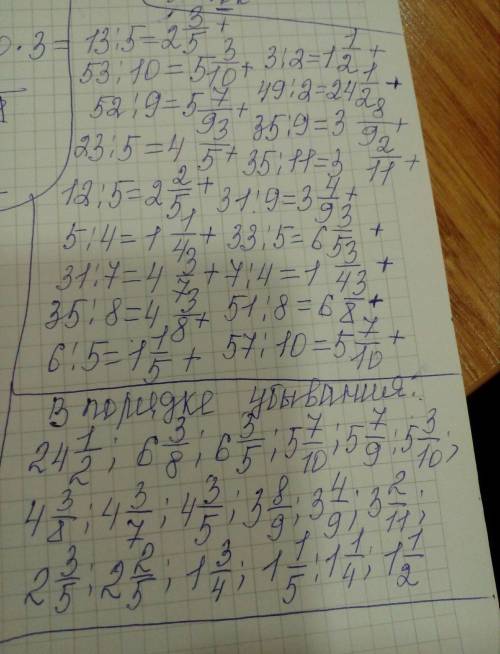 0·3= 13:5=2 3/5 +
53:10=5 3/10 + 3:2=1 1/2 +
52:9=5 7/9 + 49:2=24 1/2 +
23:5=4 3/5 + 35:9=3 8/9 +
35:11=3 2/11 +
12:5=2 2/5 + 31:9=3 4/9 +
5:4=1 1/4 + 33:5=6 3/5 +
31:7=4 3/7 + 7:4=1 3/4 +
35:8=4 3/8 + 51:8=6 3/8 +
6:5=1 1/5 + 57:10=5 7/10 +
В порядке убывания:
24 1/2; 6 3/8; 6 3/5; 5 7/10; 5 7/9; 5 3/10;
4 3/8; 4 3/7; 4 3/5; 3 8/9; 3 4/9; 3 2/11;
2 3/5; 2 2/5; 1 3/4; 1 1/5; 1 1/4; 1 1/2